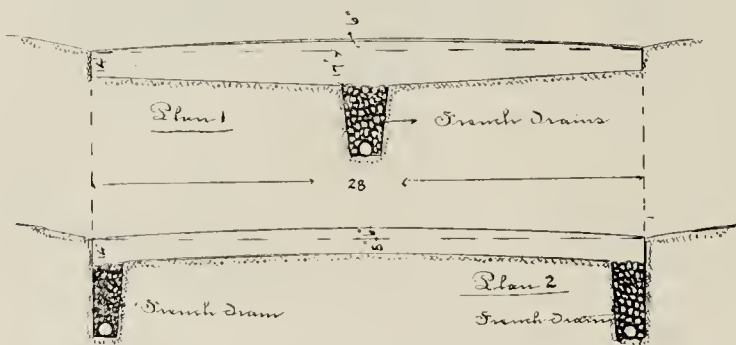 Plan 1
French drains
28
Plan 2
French drain
French drains